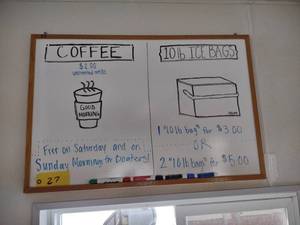 COFFEE
$2.00
unlimited refills
GOOD
MORNING
Free on Saturday and on
Sunday Morning to Boaters!
27
10 lb ICE BAGS
1 "10 lb bag" for $3.00
OR
2 "10 lb bags" for $5.00